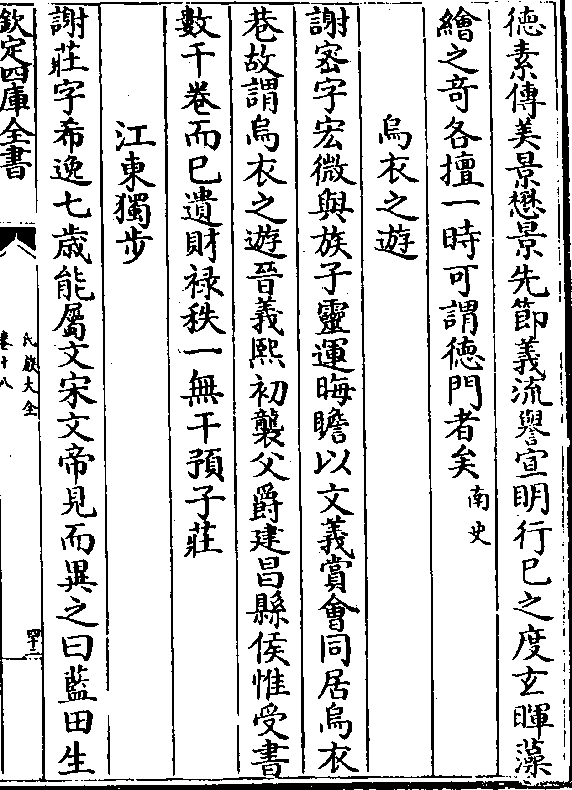 德素傳美景懋景先節義流譽宣眀行巳之度玄暉藻
繪之竒各擅一時可謂德門者矣南史
烏衣之遊
謝宻字宏微與族子靈運晦瞻以文義賞會同居烏衣
巷故謂烏衣之遊晉義熙初襲父爵建昌縣侯惟受書
數千卷而巳遺財禄秩一無干預子莊
江東獨步
謝莊字希逸七歲能屬文宋文帝見而異之曰藍田生
欽定四庫全書
氏族大全
卷十八
四十二